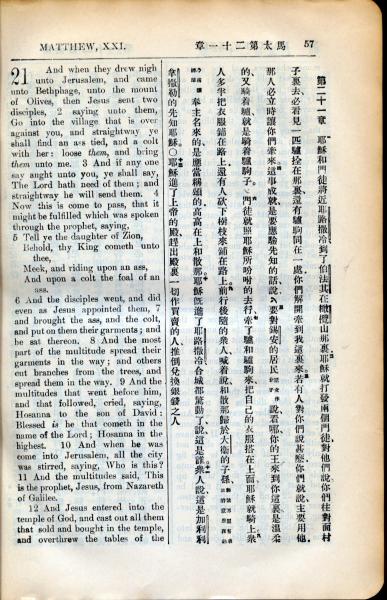 MATTHEW, XXI.
馬太第二十一章
57
21 And when they drew nigh
unto Jerusalem, and came
unto Bethphage, unto the mount
of Olives, then Jesus sent two
disciples, 2 saying unto them,
Go into the village that is over
against you, and straightway ye
shall find an ass tied, and a colt
with her: loose them, and bring
them unto me. 3 And if any one
say aught unto you, ye shall say,
The Lord hath need of them; and
straightway he will send them. 4
Now this is come to pass, that it
might be fulfilled which was spoken
through the prophet, saying,
5 Tell ye the daughter of Zion,
Behold, thy King cometh unto
thee,
Meek, and riding upon an ass,
And upon a colt the foal of an
ass.
6 And the disciples went, and did
even as Jesus appointed them, 7
and brought the ass, and the colt,
and put on them their garments; and
he sat thereon. 8 And the most
part of the multitude spread their
garments in the way; and others
cut branches from the trees, and
spread them in the way. 9 And the
multitudes that went before him,
and that followed, cried, saying,
Hosanna to the son of David:
Blessed is he that cometh in the
name of the Lord; Hosanna in the
highest. 10 And when he was
come into Jerusalem, all the city
was stirred, saying, Who is this?
11 And the multitudes said, This
is the prophet, Jesus, from Nazareth
of Galilee.
12 And Jesus entered into the
temple of God, and cast out all them
that sold and bought in the temple,
and overthrew the tables of the
第二十一章 耶穌和門徒將近耶路撒冷到了伯法其在橄欖山那裏耶穌就打發兩個門徒對他們說你們往對面村
子裏去必看見一匹驢拴在那裏還有驢駒同在一處你們解開牽到我這裏來若有人對你們說甚麼你們就說主要用他、
那人必立時讓你們牽來這事成就是要應驗先知的話說、要對錫安的居民說看哪你的王來到你這裏是溫柔
的、又騎着驢就是騎着驢駒子。門徒就照耶穌所吩咐的去行牽了驢和驢駒來把自己的衣服搭在上面耶穌就騎上衆
人多半把衣服鋪在路上、還有人砍下樹枝來鋪在路上前行後隨的衆人喊着說和散那歸於大衛的子孫
奉主名來的、是應當稱頌的、高高在上和散那。耶穌旣進了耶路撒冷合城都驚動了說這是誰衆人說、這是加利利
拿撒勒的先知耶穌○耶穌進了上帝的殿趕出殿裏一切作買賣的人推倒兌換銀錢之人